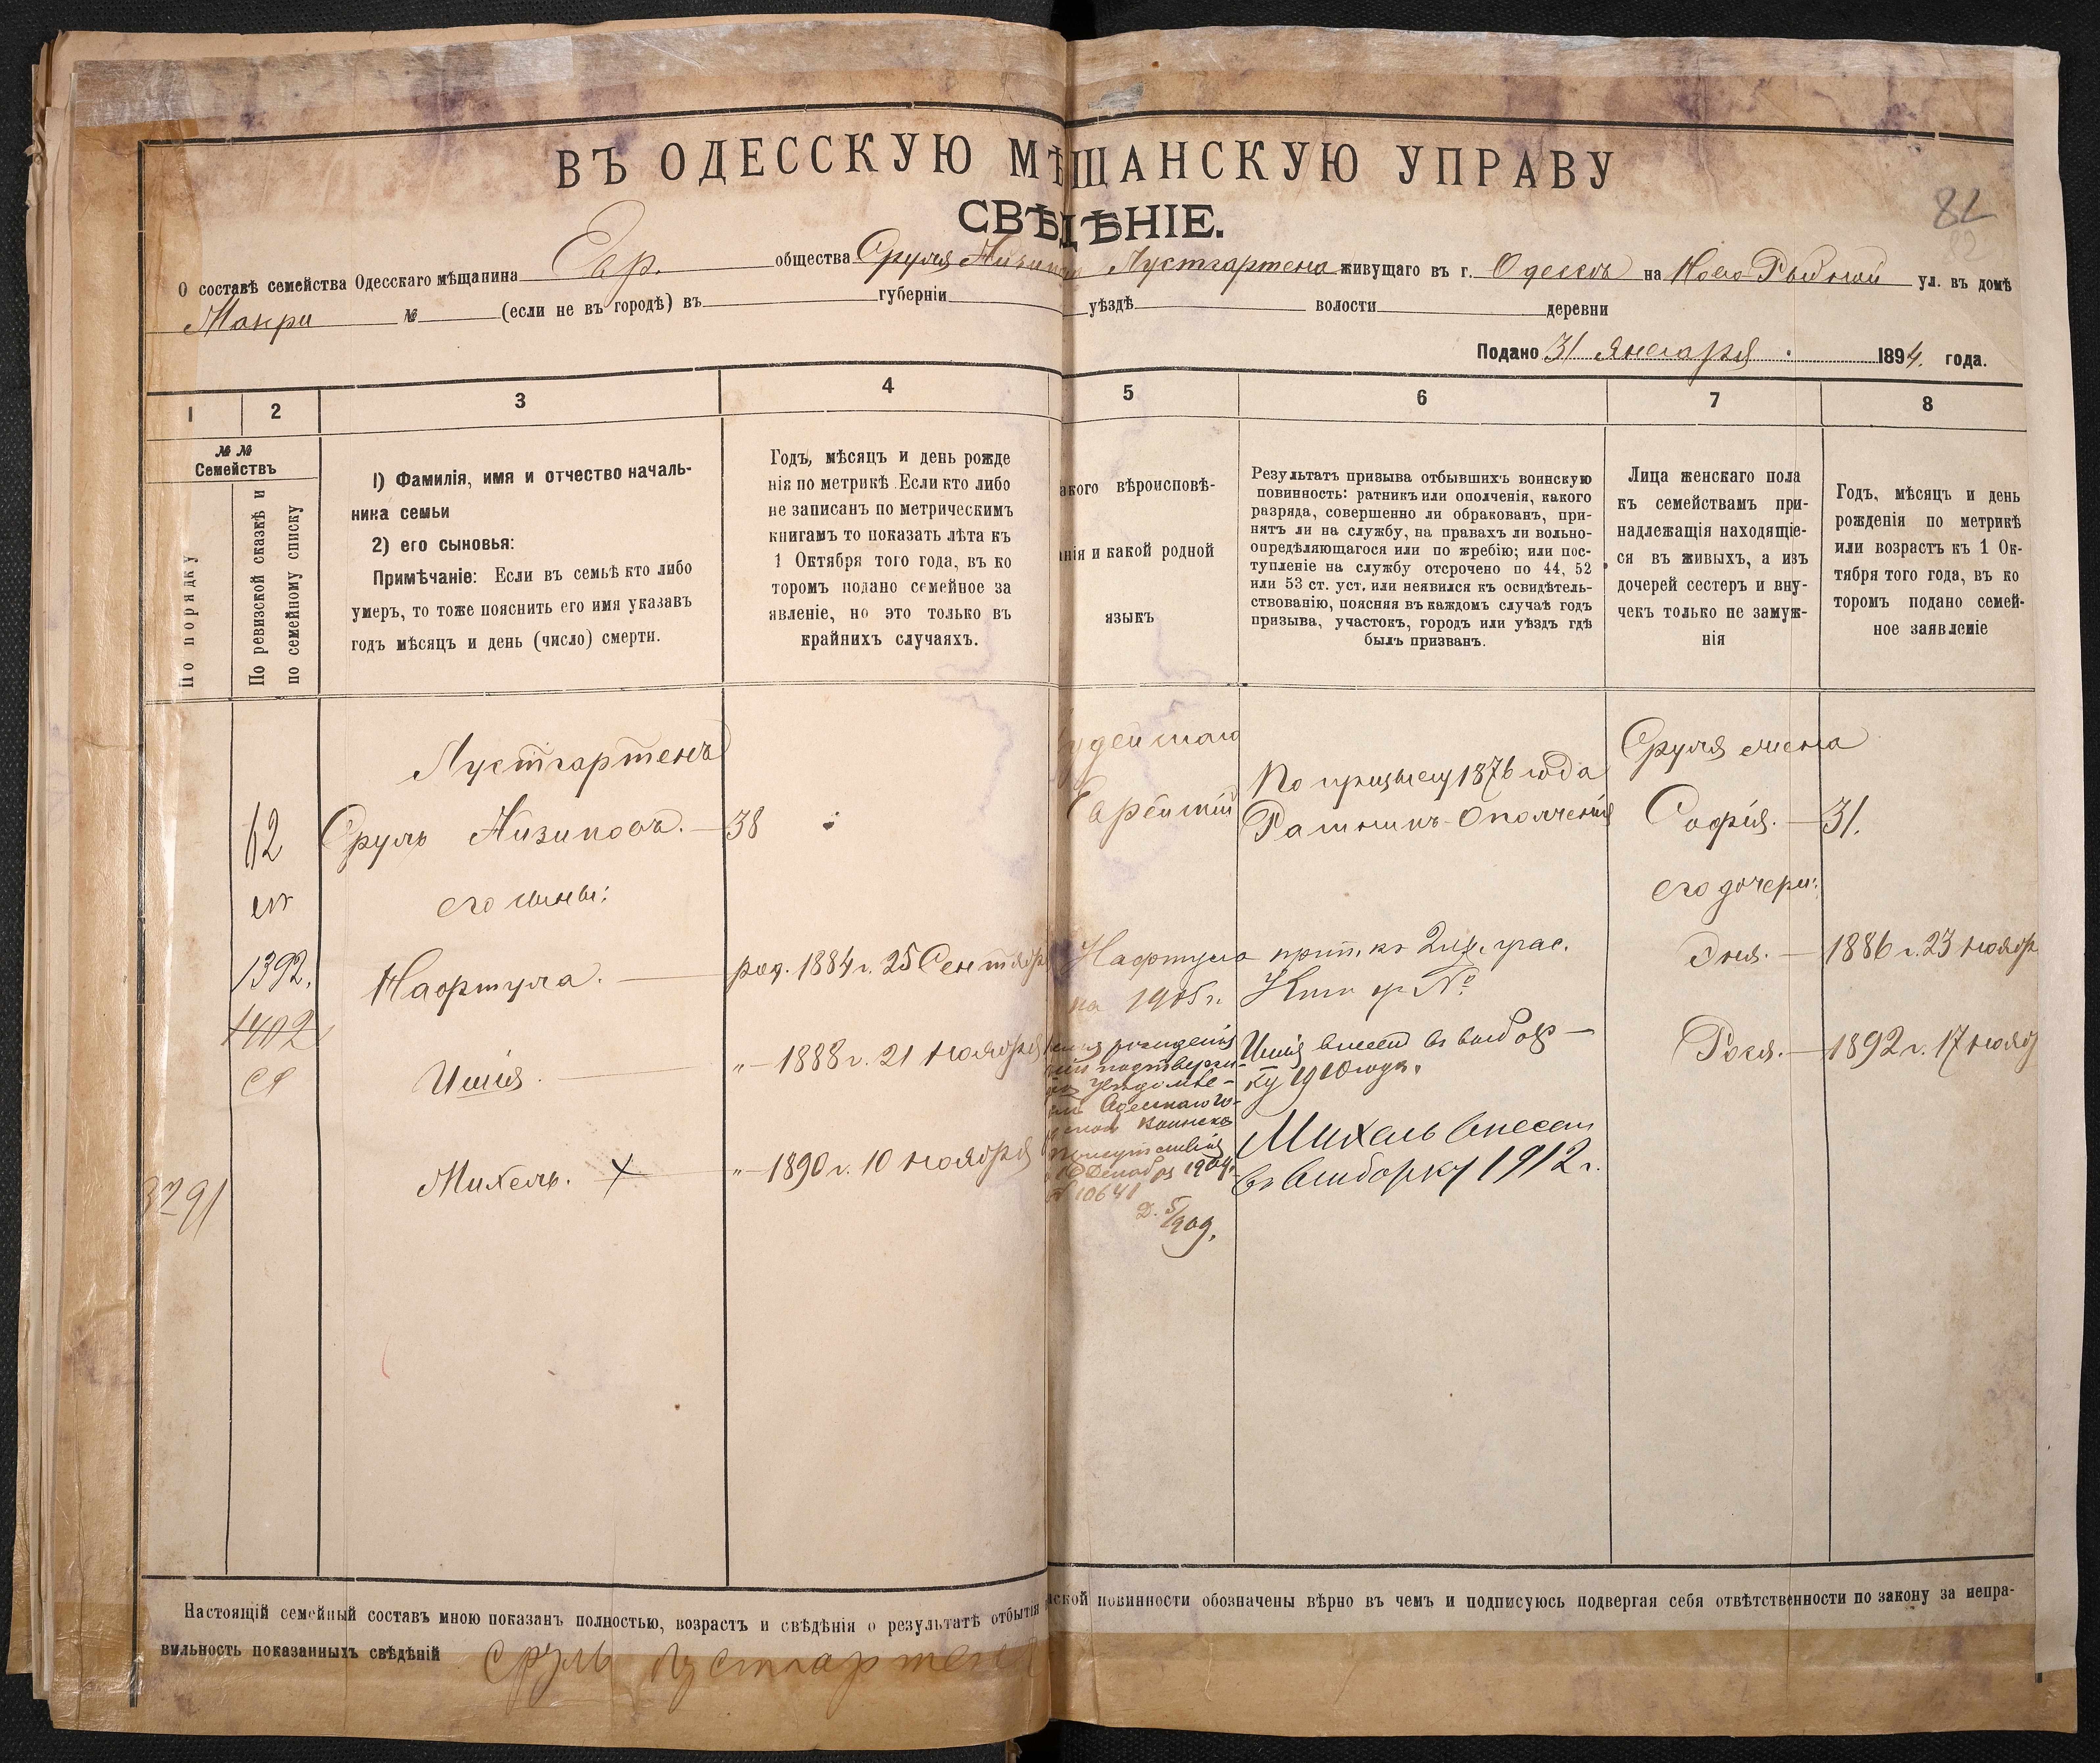 ВЪ ОДЕССКУЮ МѢЩАНСКУЮ УПРАВУ
СВѢДѢНІЕ.
82
О составѣ семейства Одесскаго мѣщанина Евр. общества Сруля Лустгартена живущаго въ г. Одессѣ на Ново Рыбной ул. въ домѣ
Макри № (если не въ городѣ) въ губерніи уѣздѣ волости деревни
Подано 31 Января 1894 года.
1 2 3 4 5 6 7 8
№ №
Семействъ
По порядку
По ревизской сказкѣ и
по семейному списку
1) Фамилія, имя и отчество началь-
ника семьи
2) его сыновья:
Примѣчаніе: Если въ семьѣ кто либо
умеръ, то тоже пояснить его имя указавъ
годъ мѣсяцъ и день (число) смерти.
Годъ, мѣсяцъ и день рожде
нія по метрикѣ. Если кто либо
не записанъ по метрическимъ
книгамъ то показать лѣта къ
1 Октября того года, въ ко
торомъ подано семейное за
явленіе, но это только въ
крайнихъ случаяхъ.
акого вѣроисповѣ-
анія и какой родной
языкъ
Результатъ призыва отбывшихъ воинскую
повинность: ратникъ или ополченія, какого
разряда, совершенно ли обракованъ, при-
нятъ ли на службу, на правахъ ли вольно-
опредѣляющагося или по жребію; или пос-
тупленіе на службу отсрочено по 44, 52
или 53 ст. уст. или неявился къ освидѣтель-
ствованію, поясняя въ каждомъ случаѣ годъ
призыва, участокъ, городъ или уѣздъ гдѣ
былъ призванъ.
Лица женскаго пола
къ семействамъ при-
надлежащія находящіе-
ся въ живыхъ, а изъ
дочерей сестеръ и вну-
чекъ только не замуж-
нія
Годъ, мѣсяцъ и день
рожденія по метрикѣ
или возрастъ къ 1 Ок-
тября того года, въ ко
торомъ подано семей-
ное заявленіе
Лустгартенъ
62
Сруль 38
его сыны:
1392.
Нафтула. род. 1884 г. 25 Сентября
1402
Ишія. "—1888 г. 21 ноября
Михель. "—1890 г. 10 ноября
3291
удейскаго
Еврейскій
По призыву 1876 года
Ратникъ Ополченія
Нафтула
на 1905 г.
рожденія
подтверж-
Одесскаго Го-
Воинска
Присутствія
Декабря 1904
№ 10641
1909.
Ишія внесен въ выбор-
ку 1910 года.
Михель внесен
въ выборку 1912 г.
Сруля жена
Софія. — 31.
его дочери:
Эня. — 1886 г. 23 ноябр
Рося. — 1892 г. 17 нояб
Настоящій семейный составъ мною показанъ полностью, возрастъ и свѣдѣнія о результатѣ отбытія нской повинности обозначены вѣрно въ чемъ и подписуюсь подвергая себя отвѣтственности по закону за непра-
вильность показанныхъ свѣдѣній Сруль Лустгартенъ